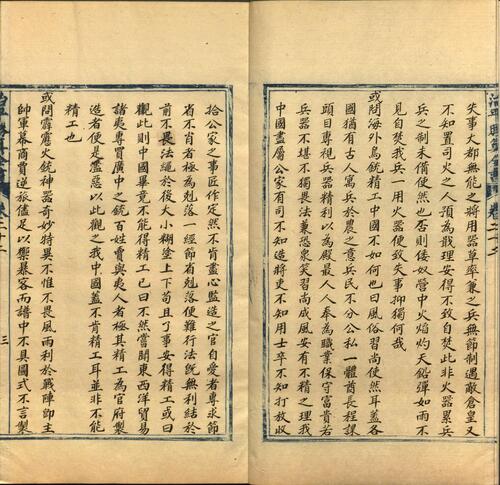 失事大都無能之將用器草率兼之兵無節制遇敵倉皇又
不知置司火之人預為戢理安得不致自焚此非火器累兵
兵之制未備使然也否則倭奴營中火焰灼天鉛彈如雨不
見自焚我兵一用火器便致失事抑獨何哉
或問海外鳥銃精工中國不如何也曰風俗習尚使然耳蓋各
國猶有古人寓兵於農之意兵民不分公私一體酋長程課
頭目專視兵器精利以為殿最人人奉為職業保守富貴若
兵器不堪不獨畏法兼恐衆笑習尚成風安有不精之理我
中國盡屬公家有司不知造將吏不知用士卒不知打放收
拾公家之事匠作定然不肯盡心監造之官自愛者專求節
省不肖者極為剋落一經節省剋落便難行法既無利結於
前不畏法繩於後大小糊塗上下苟且了事安得精工或曰
觀此則中國畢竟不能得精工已曰不然嘗聞東西洋貿易
諸夷專買廣中之銃百姓賣與夷人者極其精工為官府製
造者便是濫惡以此觀之我中國蓋不肯精工耳並非不能
精工也
或問霹靂火銃神器奇妙特異不惟不畏風雨利於戰陣即主
帥軍幕商賈逆旅儘足以禦暴客而譜中不具圖式不言製
卷二十二
三
卷二十二